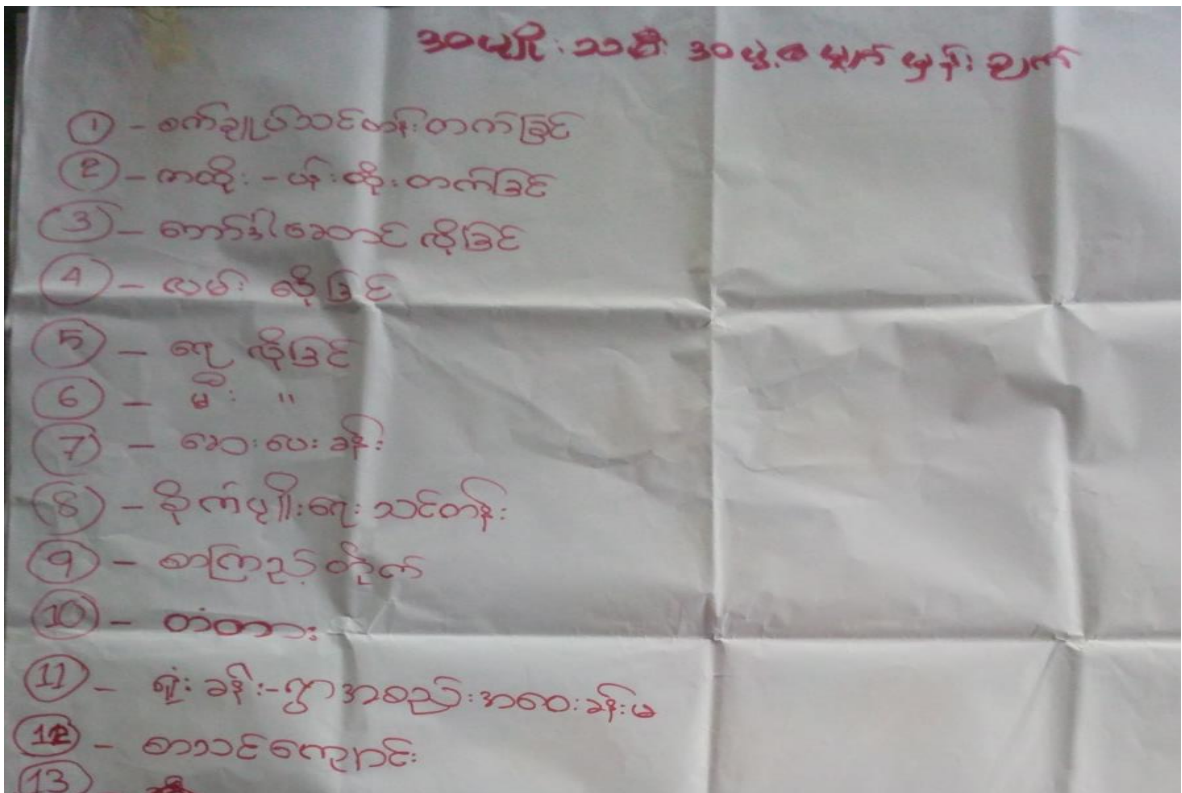 အမျိုးသမီး အဖွဲ့ဓ မှုတ်မှန်းချက်
① - စက်ချုပ်သင်တန်းတက်ခြင်
② - ကထိုး - ပန်းထိုးတက်ခြင်
③ - ဘော်ဒါဆောင် လိုခြင်
④ - လမ်း လိုခြင်
⑤ - ရေ လိုခြင်
⑥ - မီး "
⑦ - ဆေးပေးခန်း
⑧ - စိုက်ပျိုးရေး သင်တန်း
⑨ - စာကြည့်တိုက်
⑩ - တံတား
⑪ - ရုံးခန်း-ရွာအစည်းအဝေးခန်းမ
⑫ - စာသင်ကျောင်း
⑬